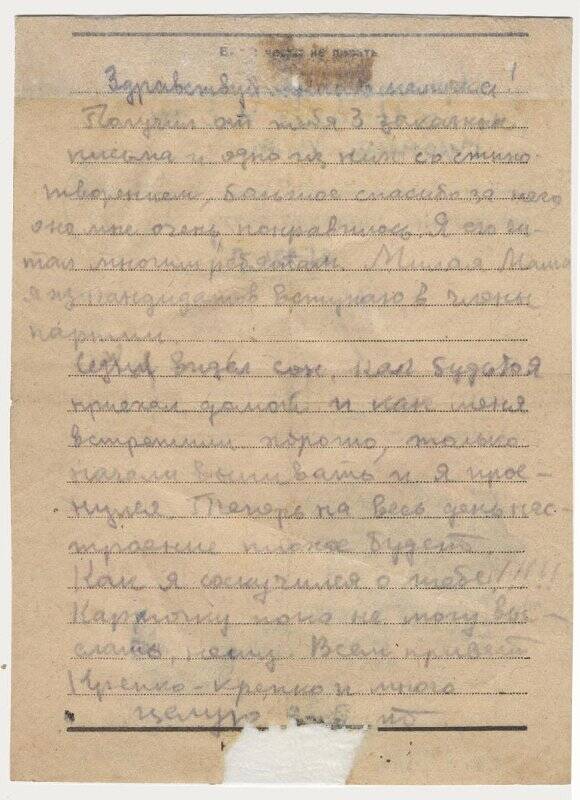 не писать
Здравствуй
Получил от тебя 3 заказных
письма и одно из них со стихо-
творением, большое спасибо за него
оно мне очень понравилось. Я его чи-
тал многим ребятам. Милая Мама
я из кандидатов вступаю в члены
партии.
видел сон, как будто я
приехал домой и как меня
встретили хорошо, только
начали выпивать и я прос-
нулся. Теперь на весь день нас-
троение плохое будет.
Как я соскучился о тебе!!!!!
Карточку пока не могу выс-
лать, Всем привет
Крепко-крепко и много
целую